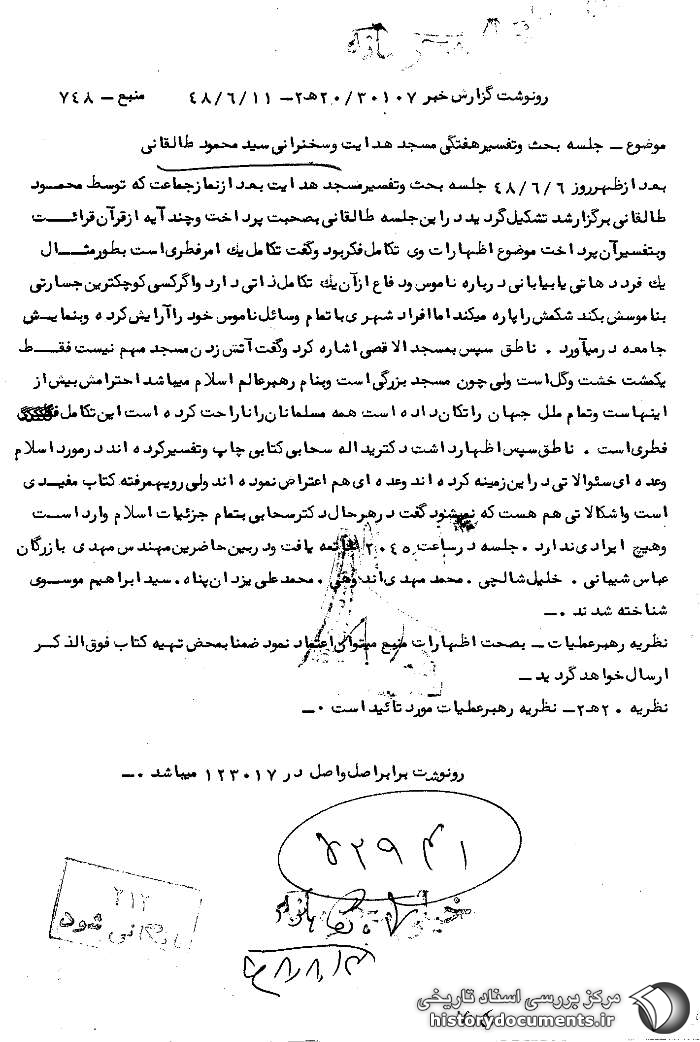 رونوشت گزارش خبر ۳۰۱۰۷/۲۰هـ۲ــ ۴۸/۶/۱۱ منبع ــ ۷۴۸
موضوع ــ جلسه بحث وتفسیرهفتگی مسجد هدایت وسخنرانی سید محمود طالقانی
بعد ازظهرروز ۴۸/۶/۶ جلسه بحث وتفسیرمسجد هدایت بعد ازنمازجماعت که توسط محمود
طالقانی برگزارشد تشکیل گردید دراین جلسه طالقانی بصحبت پرداخت وچند آیه ازقرآن قرائت
وبتفسیرآن پرداخت موضوع اظهارات وی تکامل فکربود وگفت تکامل یك امرفطری است بطورمثال
یك فرد دهاتی یابیابانی درباره ناموس ود فاع ازآن یك تکامل ذاتی دارد واگرکسی کوچکترین جسارتی
بناموسش بکند شکمش راپاره میکند اما افراد شهری باتمام وسائل ناموس خود را آرایش کرده وبنمایش
جامعه درمیآورد . ناطق سپس بمسجد الاقصی اشاره کرد وگفت آتش زدن مسجد مهم نیست فقط
یکمشت خشت وگل است ولی چون مسجد بزرگی است وبنام رهبرعالم اسلام میباشد احترامش بیش از
اینهاست وتمام ملل جهان راتکان داده است همه مسلمانان راناراحت کرده است این تکامل
فطری است . ناطق سپس اظهارداشت دکتریداله سحابی کتابی چاپ وتفسیرکرده اند درمورد اسلام
وعده ای سئوالاتی دراین زمینه کرده اند وعده ای هم اعتراض نموده اند ولی رویهمرفته کتاب مفیدی
است واشکالاتی هم هست که نمیشود گفت درهرحال دکترسحابی بتمام جزئیات اسلام وارد است
وهیچ ایرادی ندارد . جلسه درساعت ۲۰۴۵ خاتمه یافت ودربین حاضرین مهندس مهدی بازرگان
عباس شیبانی . خلیل شالچی . محمد مهدی . محمد علی یزدان پناه . سید ابراهیم موسوی
شناخته شدند .ــ
نظریه رهبرعملیات ــ بصحت اظهارات منبع میتوان اعتماد نمود ضمنا بمحض تهیه کتاب فوق الذکر
ارسال خواهد گردید ــ
نظریه ۲۰هـ۲ــ نظریه رهبرعملیات مورد تائید است .ــ
رونوشت برابراصل واصل در ۱۲۳۰۱۷ میباشد .ــ
۳۱۲
بایگانی شود
مرکز بررسی اسناد تاریخی
historydocuments.ir